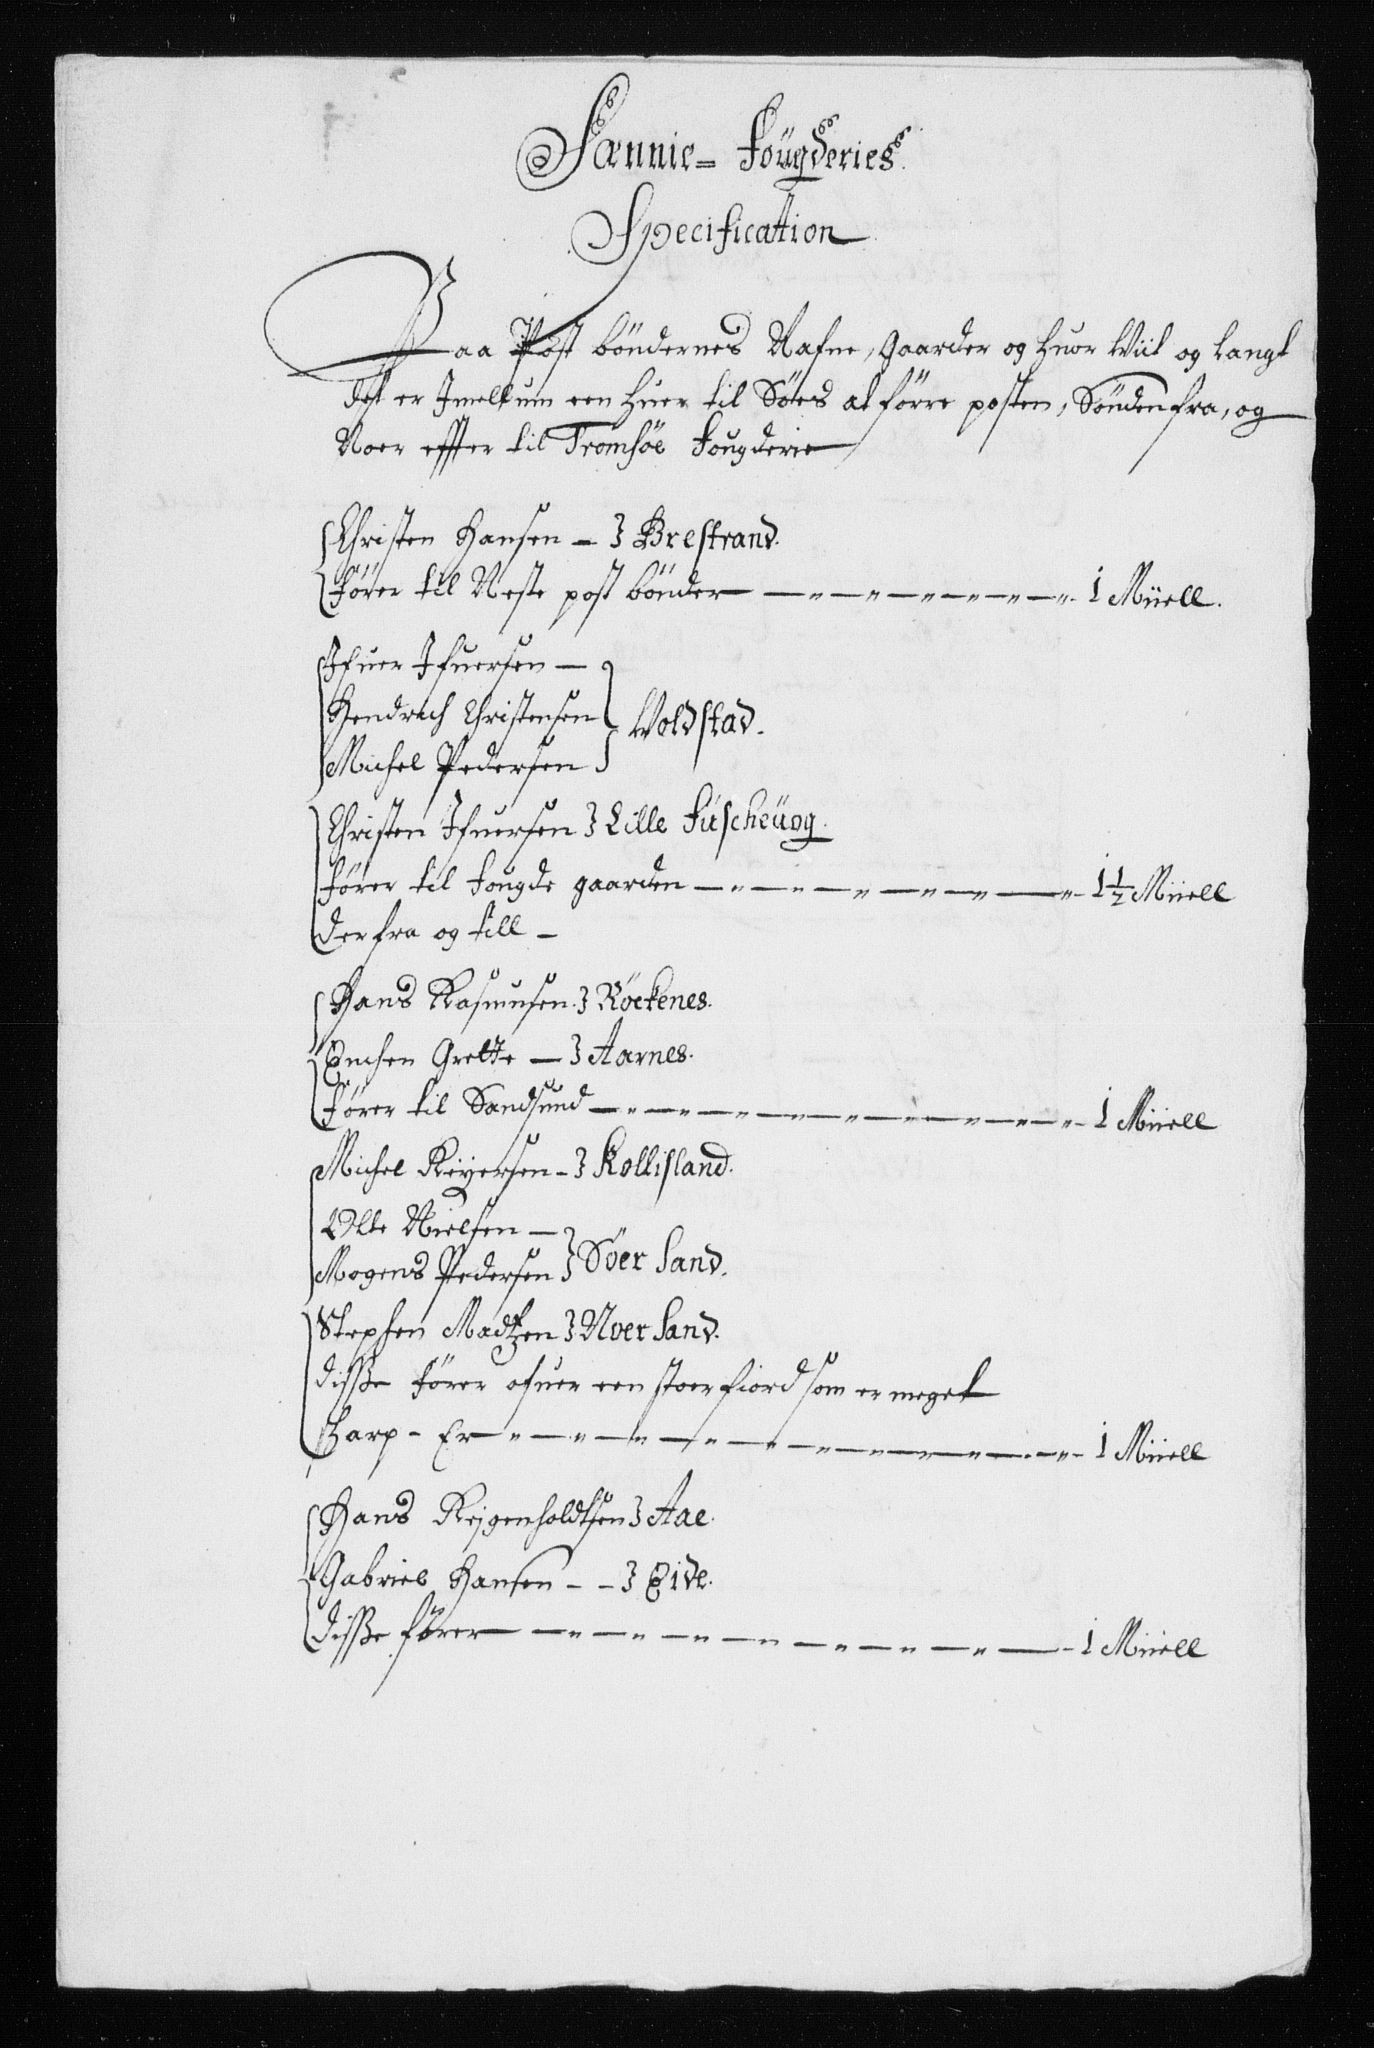 Sænnie- Fougderies
Specification
Paa Post böndernes Nafne, Gaarder og huor Wiit og Langt
det er Jmellum een huer til Söes at förre posten, Söndenfra, og
Noer effter til Tromsöe Fougderie
Christen Hansen - } Brestrand.
förer til Neste post bönder 1 Müell.
Jfuer Jfuersen -
Hendrich Christensen } Woldstad.
Michel Pedersen
Christen Jfuersen } Lille Füscheüog.
förer til Fougde gaarden 1 1/2 Müell
derfra og till -
Hans Rasmusen } Röckenes.
Enchen Grette - } Aarnes.
förer til Sandsund 1 Müell
Michel Reyersen - } Kollisland.
Olle Nielsen -
Mogens Pedersen } Söer Sand.
Stephen Madtzen } Noer Sand.
disse förer ofuer een stoer fiord som er meget
sharp - Er 1 Müell
Hans Rejgenholdtsen } Aae.
Gabriel Hansen - - } Eide.
disse förer 1 Müell